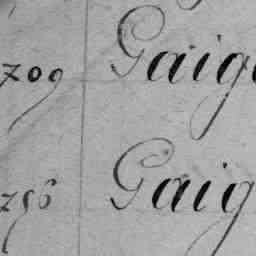 709 Gaig
756 Gaig